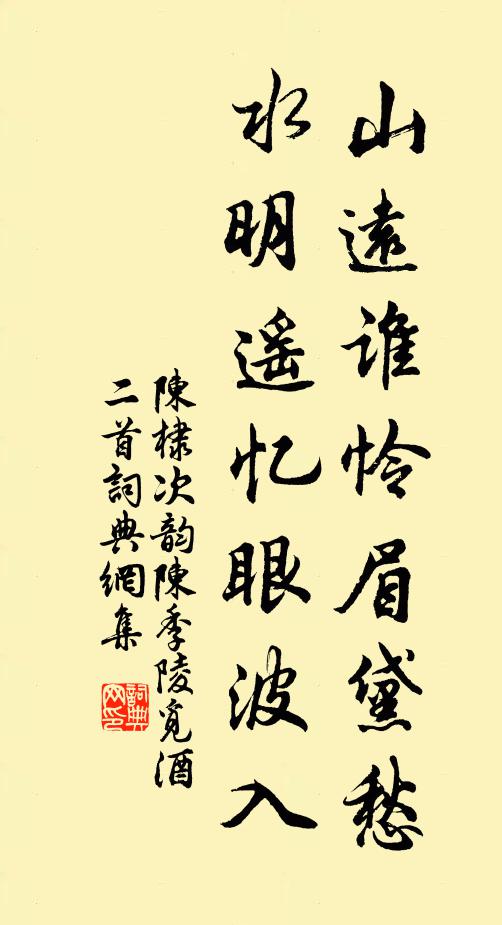 山遠誰怜眉黛愁
水明遥忆眼波入
陳棣次韵陳季陵覓酒
二首詞典網集
詞典
网印